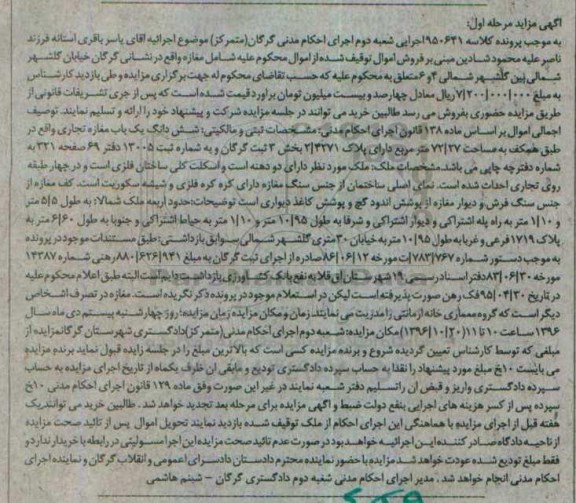 آگهی مزاید مرحله اول:
به موجب پرونده کلاسه ۹۵۰۶۴۱اجرایی شعبه دوم اجرای احکام مدنی گرگان(متمرکز) موضوع اجرائیه آقای یاسر باقری استانه فرزند
ناصر علیه محمود شادین مبنی بر فروش اموال توقیف شده از اموال محکوم علیه شامل مغازه واقع در نشانی گرگان خیابان گلشهر
شمالی بین گلشهر شمالی ۴و۶ متعلق به محکوم علیه که حسب تقاضای محکوم له جهت برگزاری مزایده و طی بازدید کارشناس
به مبلغ ۷/۲۰۰/۰۰۰/۰۰۰ریال معادل چهارصد و بیست میلیون تومان براورد قیمت شده است که پس از جری تشریفات قانونی از
طریق مزایده حضوری بفروش می رسد طالبین خرید می توانند در جلسه مزایده شرکت و پیشنهاد خود را ارائه و تسلیم نمایند. توصیف
اجمالی اموال بر اساس ماده ۱۳۸ قانون اجرای احکام مدنی: مشخصات ثبتی و مالکیتی: شش دانگ یک باب مغازه تجاری واقع در
طبق همکف به مساحت ۷۲/۲۷ متر مربع دارای پلاک ۲/۴۲۷۱ بخش ۳ ثبت گرگان و به شماره ثبت ۱۳۰۰۵ دفتر ۶۹ صفحه ۳۲۱ به
شماره دفترچه چاپی می باشد.مشخصات ملک: ملک مورد نظر دارای دو دهنه است و اسکلت کلی ساختان فلزی است و در چهار طبقه
روی تجاری احداث شده است. نمای اصلی ساختمان از جنس سنگ مغازه دارای کره کره فلزی و شیشه سکوریت است. کف مغازه از
جنس سنگ فرش و دیوار مغازه از پوشش اندود گچ و پوشش کاغذ دیواری است توضیحات:حدود اربعه ملک شمالا: به طول ۵/۵ متر
و ۱/۱۰ متر به راه پله اشتراکی و دیوار اشتراکی و شرقا به طول ۱۰/۹۵ متر و ۱/۱۰ متر به حیاط اشتراکی و جنوبا به طول ۶/۶۰ متر به
پلاک ۱۷۱۹ فرعی و غربا به طول ۱۰/۹۵ متر به خیابان ۳۰ متری گلشهر شمالی سوابق بازداشتی: طبق مستندات موجود در پرونده
به موجب دستور شماره ۷۸۳/۷۶۷/ت مورخه ۸۶/۰۶/۱۲صادره از اجرای ثبت گرگان به مبلغ ۸۸۰/۶۲۶/۹۳۱ رهنی شماره ۱۴۳۸۷
مورخه ۸۳/۰۶/۳۰دفتر اسناد رسمی ۱۹ شهرستان اق قلا به نفع بانک کشاورزی بازداشت دایم است البته طبق اعلام محکوم علیه
در تاریخ ۹۵/۰۴/۳۰فک رهن صورت پذیرفته است لیکن در استعلام موجود در پرونده ذکر نگریده است. مغازه در تصرف اشخاص
دیگر است که گروه معماری خانه ازمانتی را مدریت می نمایند.زمان و مکان مزایده زمان مزایده: روز: چهارشنبه بیستم دی ماه سال
۱۳۹۶ ساعت ۱۰ تا ۱۱(۱۳۹۶/۱۰/۲۰)مکان مزایده:شعبه دوم اجرای احکام مدنی(متمرکز)دادگستری شهرستان گرگانمزایده از
مبلغی که توسط کارشناس تعیین گردیده شروع و برنده مزایده کسی است که بالاترین مبلغ را در جلسه زایده قبول نماید برنده مزایده
می بایست ۱۰خ مبلغ مورد پیشنهاد را نقدا به حساب سپرده دادگستری تودیع و مابقی ان ظرف یکماه از تاریخ اجرای مزایده به حساب
سپرده دادگستری واریز و قبض ان راتسلیم دفتر شعبه نمایند در غیر این صورت وفق ماده ۱۲۹ قانون اجرای احکام مدنی ۱۰خ
سپرده پس از کسر هزینه های اجرایی بنفع دولت ضبط و اگهی مزایده برای مرحله بعد تجدید خواهد شد. طالبین خرید می توانندیک
هفته قبل از اجرای مزایده با هماهنگی این اجرای احکام از ملک توقیف شده بازدید نمایند تحویل اموال پس از تائید صحت مزایده
از ناحیه دادگاه صادر کننده این اجرائیه خواهد بود در صورت عدم تائید صحت مزایده این اجرا مسولیتی در رابطه با خریدار ندارد و
فقط مبلغ تودیع شده عودت خواهد شد.مزایده با حضور نماینده محترم دادستان دادسرای اعمومی و انقلاب گرگان و نماینده اجرای
احکام مدنی انجام خواهد شد. مدیر اجرای احکام مدنی شعبه دوم دادگستری گرگان – شبنم هاشمی